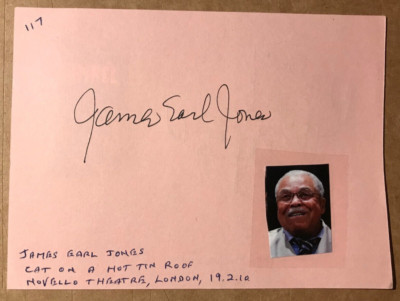 117
James Earl Jones
JAMES EARL JONES
CAT ON A HOT TIN ROOF
NOVELLO THEATRE, LONDON, 19.2.10